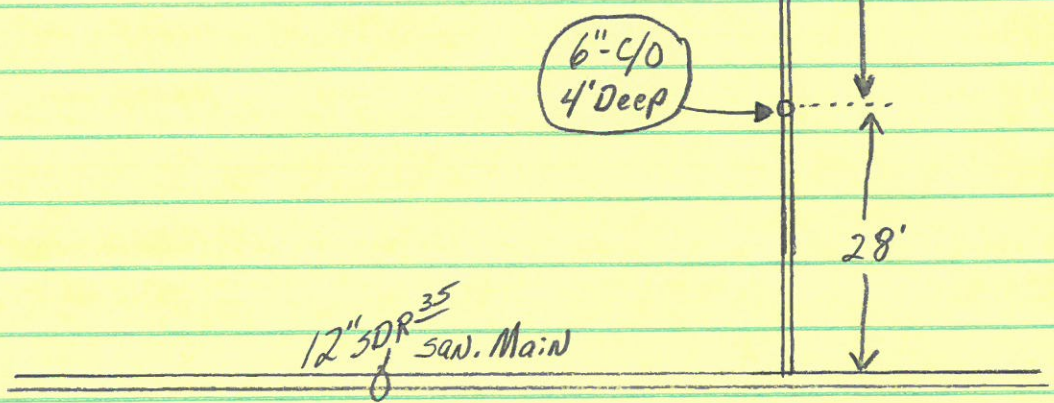 6"-C/O
4' Deep
28'
12" SDR 35 San. Main